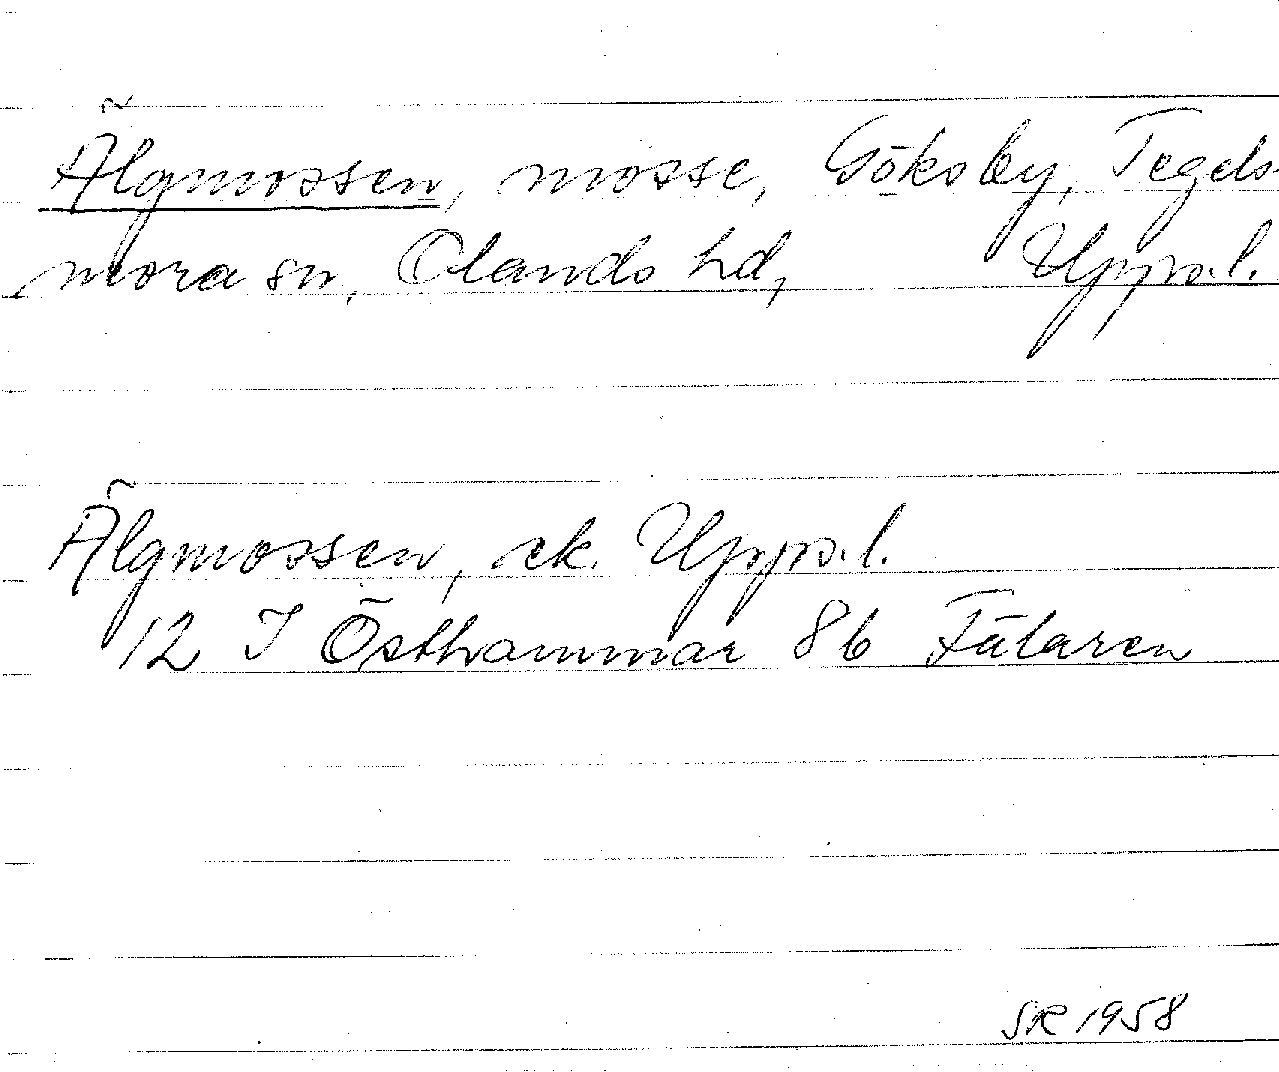 Älgmossen, mosse, Göksby, Tegels-
mora sn, Olands hd, Uppl.
Älgmossen, ek. Uppl.
12 I Östhammar 8b Fälaren
SR 1958